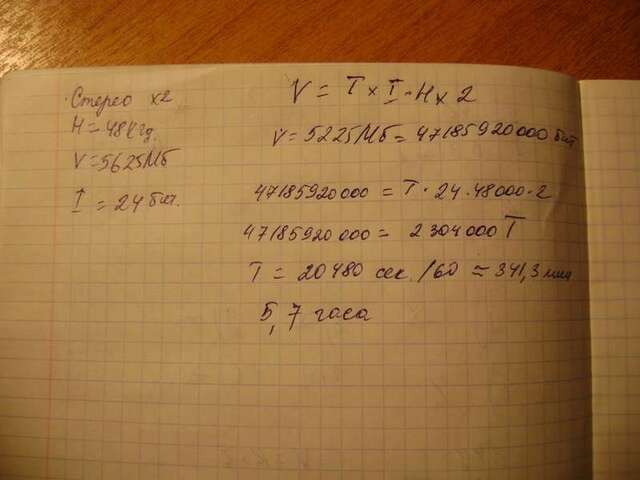 Стерео х2
H = 48 кГц.
V = 5625 Мб
I = 24 бит.
V = T × I · H × 2
V = 5225 Мб = 47185920000 бит
47185920000 = T · 24 · 48000 · 2
47185920000 = 2304000 T
T = 20480 сек. /60 ≈ 341,3 мин
5,7 часа